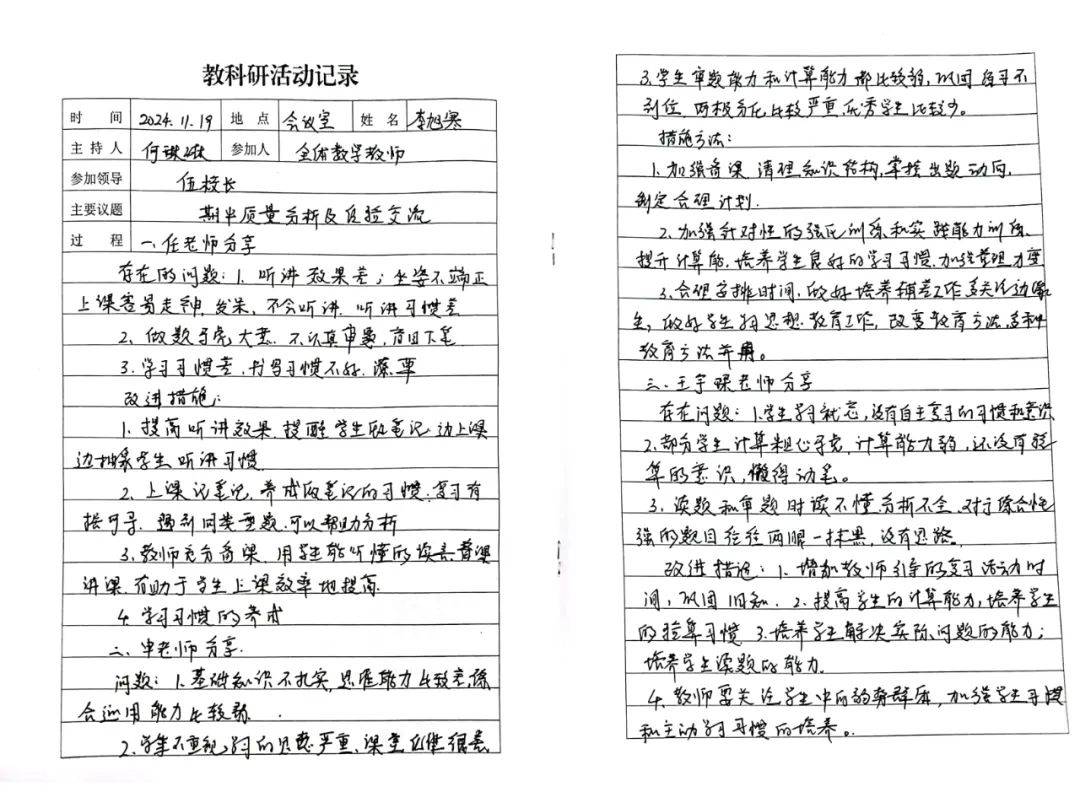 教科研活动记录
时间 2024.11.19 地点 会议室 姓名 李旭寒
主持人 何 参加人 全体数学教师
参加领导 伍校长
主要议题 期半质量分析及经验交流
过程 一、任老师分享
存在的问题：1、听讲效果差；坐姿不端正
上课容易走神、发呆、不会听讲、听讲习惯差
2、做题马虎大意、不认真审题，盲目下笔
3、学习习惯差、书写习惯不好、潦草
改进措施：
1、提高听讲效果、提醒学生做笔记、边上课
边抽学生、听讲习惯
2、上课记笔记、养成做笔记的习惯、复习有
据可寻、遇到同类型题、可以帮助分析
3、教师充分备课、用学生能听懂的
讲课、有助于学生上课效率地提高
4、学习习惯的养成
二、申老师分享.
问题：1、基础知识不扎实、思维能力比较差综
合运用能力比较弱.
2、不重视学习的思想严重、课堂
3、学生审题能力和计算能力都比较弱，巩固练习不
到位、两极分化比较严重、优秀学生比较少。
措施方法：
1、加强备课、清理知识结构，掌握出题动向，
制定合理计划.
2、加强针对性的强化训练和实践能力训练、
提升计算能、培养学生良好的学习习惯、加强管理力度
3、合理安排时间，做好培养辅差工作、多关注边缘
生，做好学生的思想教育工作，改变教育方法，多种
教育方法并用。
三、王宇老师分享
存在问题：1、学生学习就忘，没有自主复习的习惯和意识
2、部分学生计算粗心马虎，计算能力弱，还没有验
算的意识，懒得动笔。
3、读题和审题时读不懂、分析不全、对于综合性
强的题目往往两眼一抹黑，没有思路。
改进措施：1、增加教师引导的复习活动时
间，巩固旧知、2、提高学生的计算能力，培养学生
的验算习惯 3、培养学生解决实际问题的能力；
培养学生读题的能力.
4、教师要关注学生中的弱势群体，加强学生习惯
和主动学习习惯的培养。